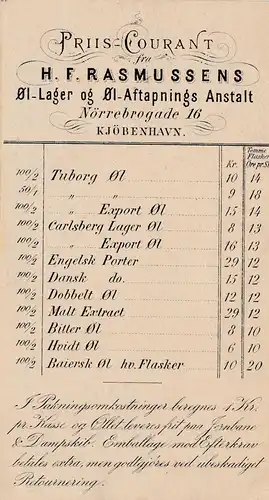 PRIIS-COURANT
fra
H. F. RASMUSSENS
Øl-Lager og Øl-Aftapnings Anstalt
Nörrebrogade 16
KJÖBENHAVN.
Kr. Tomme Flasker Öre pr. St.
100/2 Tuborg Øl 10 14
50/1 " " 9 18
100/2 " Export Øl 15 14
100/2 Carlsberg Lager Øl 8 13
100/2 " Export Øl 16 13
100/2 Engelsk Porter 29 12
100/2 Dansk do. 15 12
100/2 Dobbelt Øl 12 12
100/2 Malt Extract 29 12
100/2 Bitter Øl 8 10
100/2 Hvidt Øl 6 10
100/2 Baiersk Øl hv. Flasker 10 20
I Pakningsomkostninger beregnes 1 Kr.
pr. Kasse og Øllet leveres frit paa Jernbane
& Dampskib. Emballage mod Efterkrav
betales extra, men godtgjøres ved ubeskadiget
Returnering.